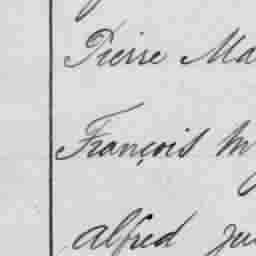 Pierre Ma
François M
Alfred Ju